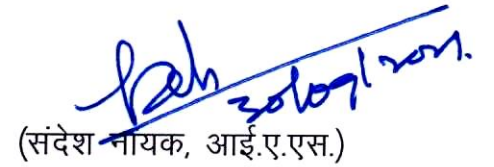 30/09/2021.
(संदेश नायक, आई.ए.एस.)